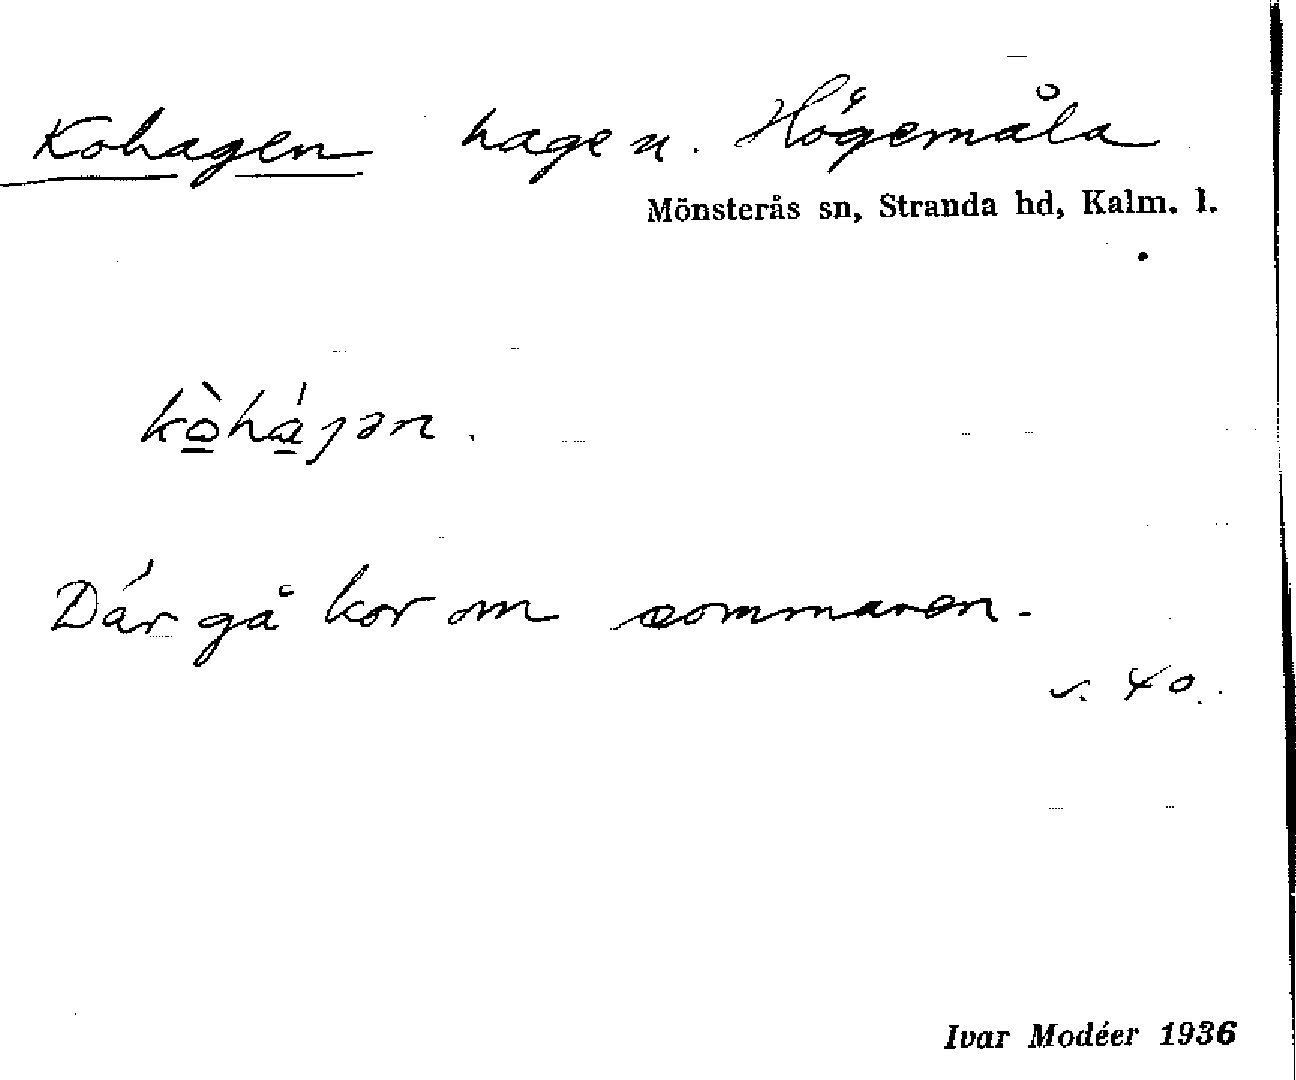 Kohagen hage u. Högemåla
Mönsterås sn, Stranda hd, Kalm. l.
kò̲há̲ȷən.
Där gå kor om sommaren.
s. 40.
Ivar Modéer 1936